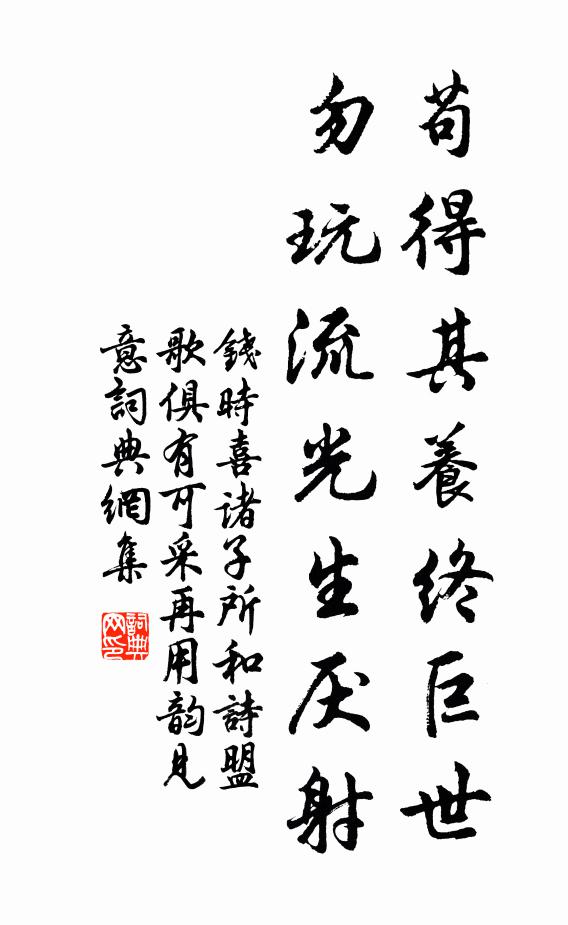 苟得其養終巨世
勿玩流光生厌射
錢時喜诸子所和詩盟
歌俱有可采再用韵見
意詞典網集
詞典网印